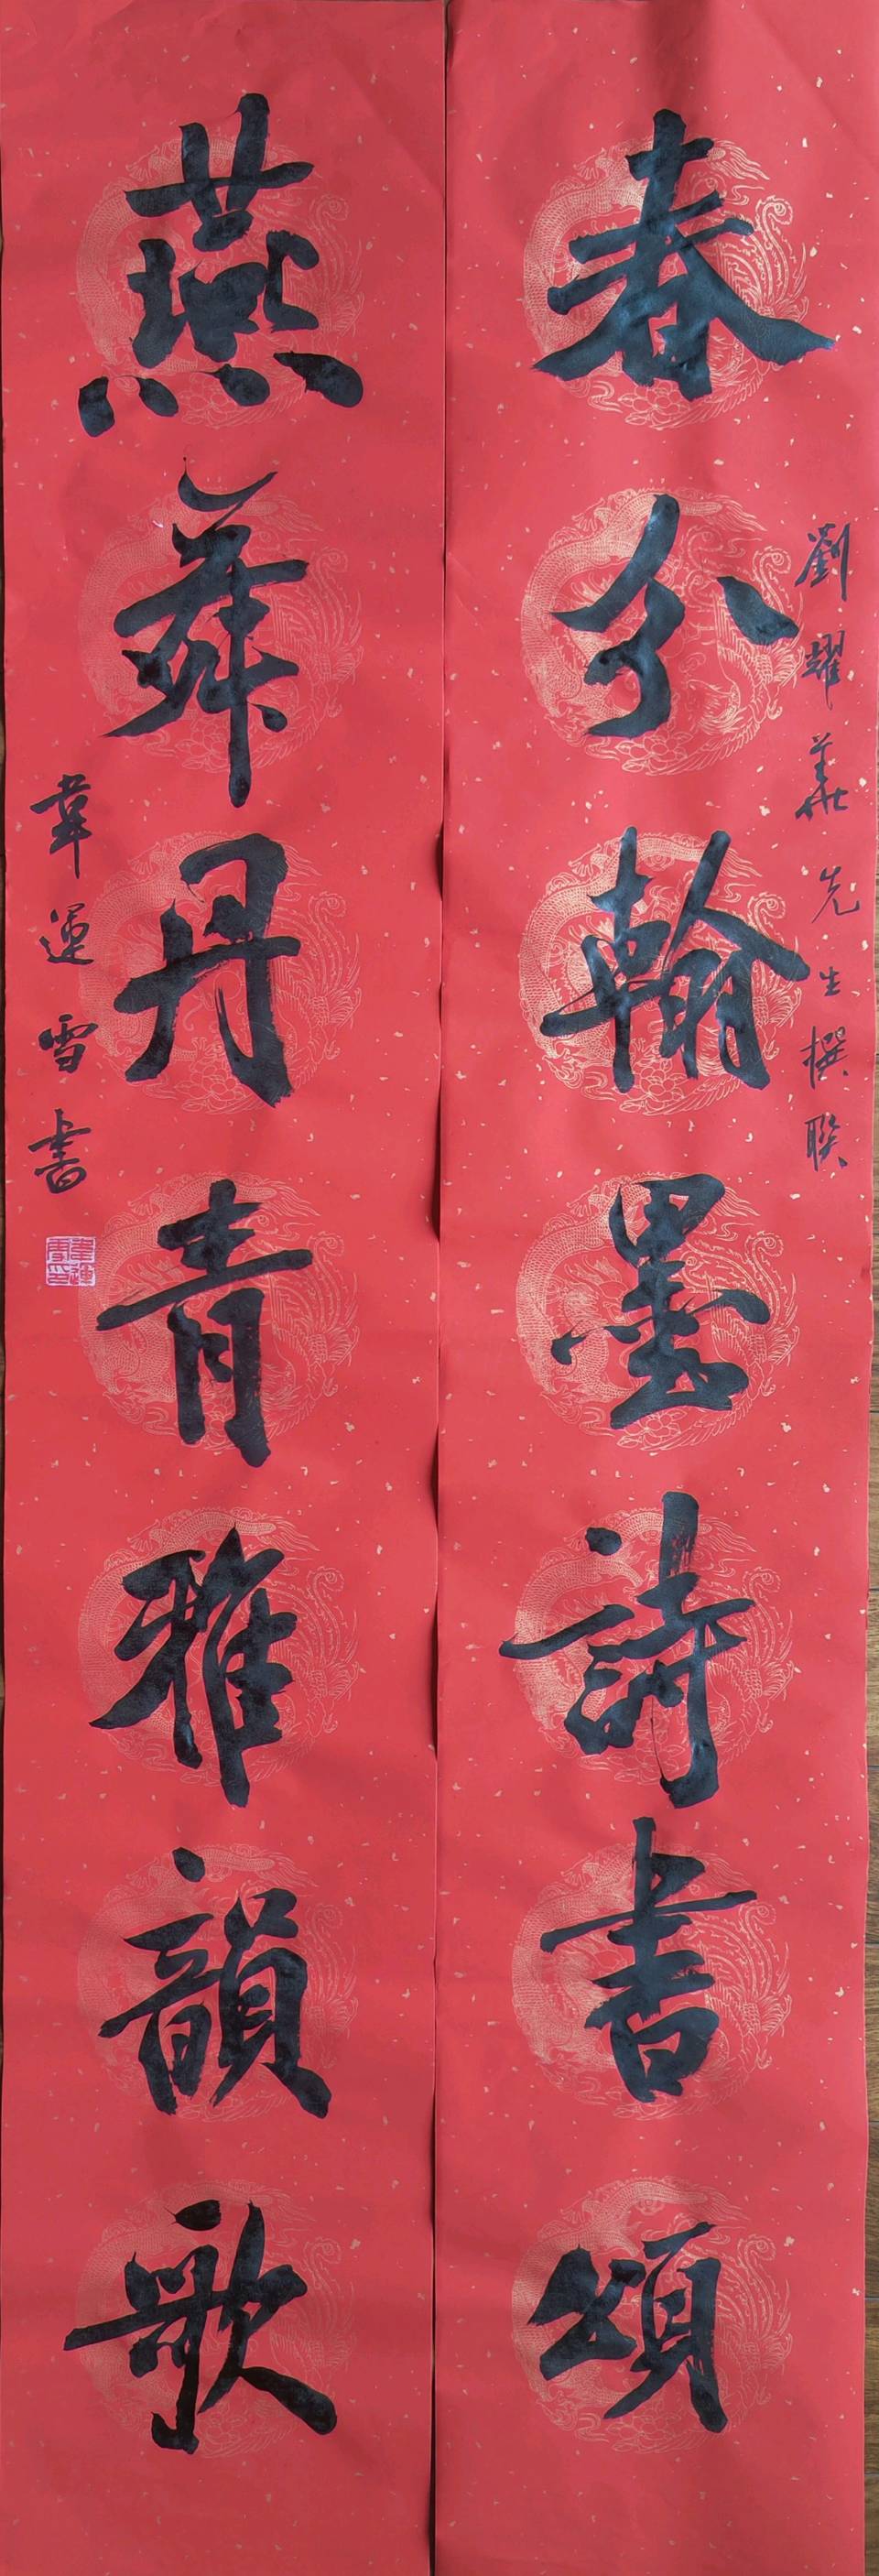 春分翰墨詩書頌
劉耀華先生撰聯
燕舞丹青雅韻歌
韋運雪書
韋運雪印